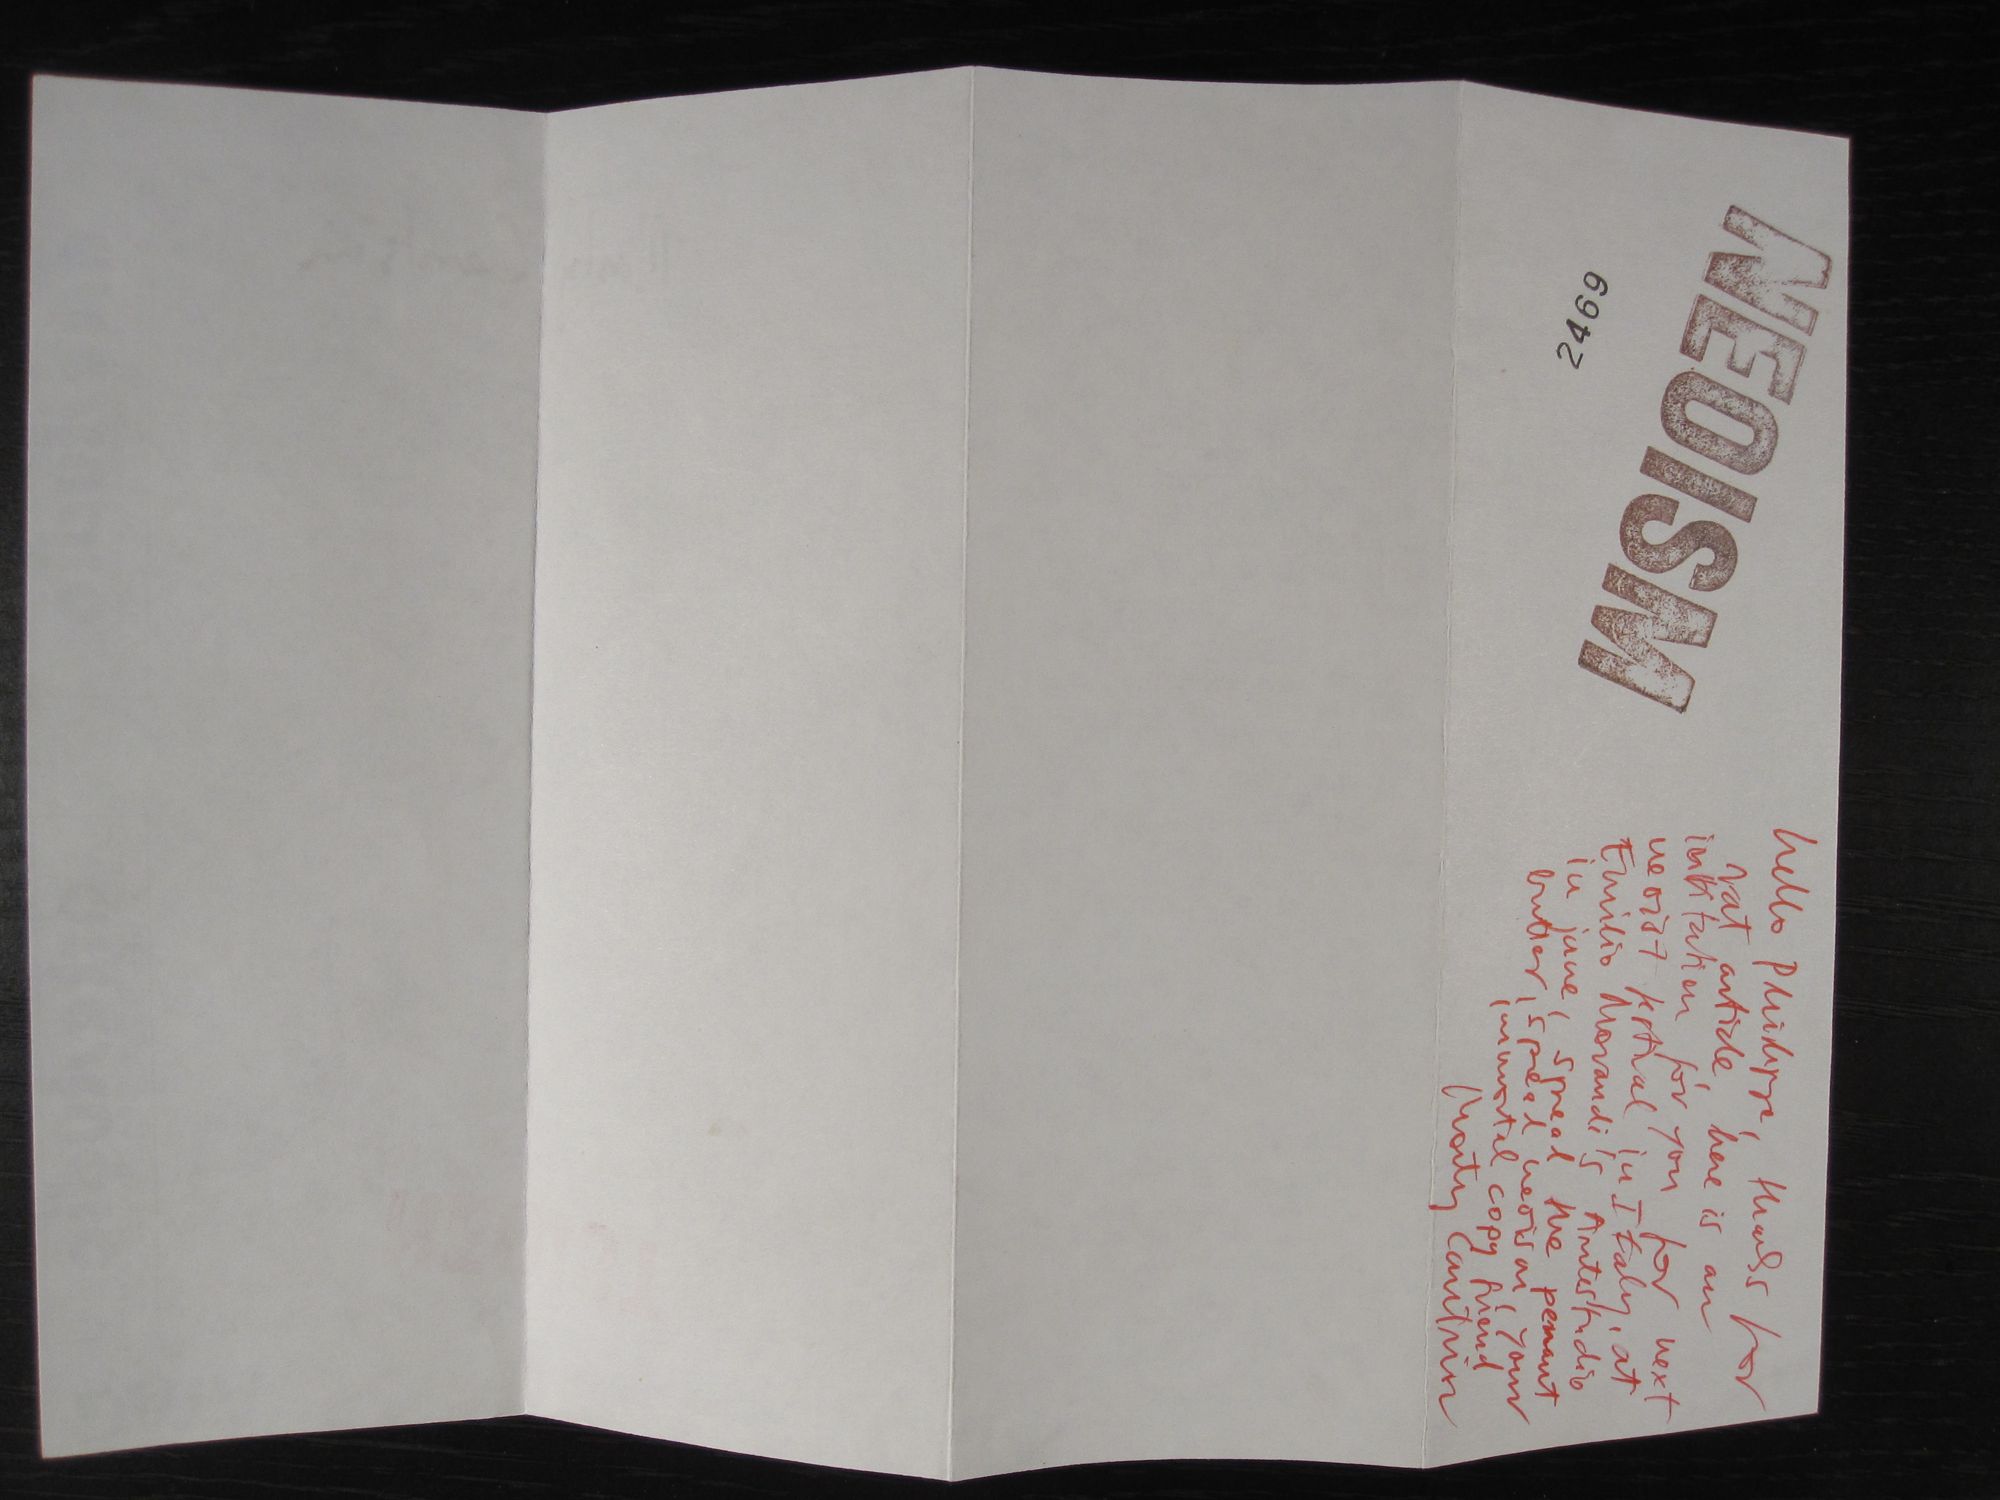 NEOISM
2469
hello Philippe, thanks for
yat article, here is an
invitation for you for next
neoist festival in Italy, at
Emilio Morandi's Artestudio
in june, spread the peanut
butter, spread neoism, your
immortal copy friend
Monty Cantsin